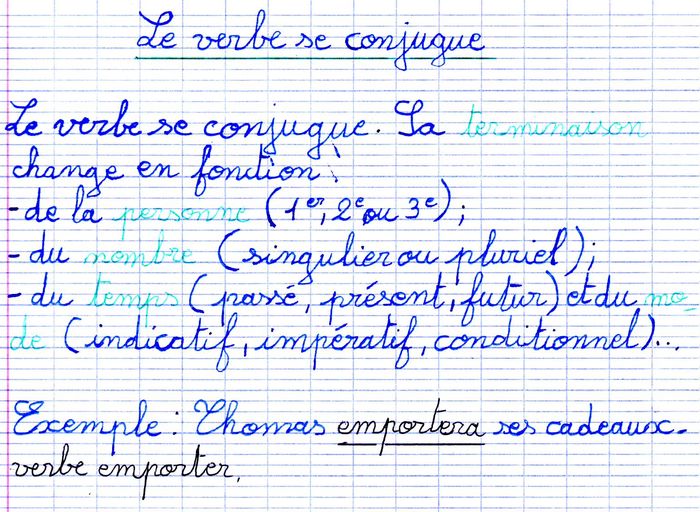 Le verbe se conjugue
Le verbe se conjugue. Sa terminaison
change en fonction :
-de la personne (1er, 2e ou 3e);
-du nombre (singulier ou pluriel);
-du temps (passé, présent, futur) et du mo-
de (indicatif, impératif, conditionnel)...
Exemple : Thomas emportera ses cadeaux.
verbe emporter.